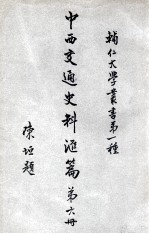 輔仁大學叢書第一種
中西交通史料滙篇 第六冊
陳垣題